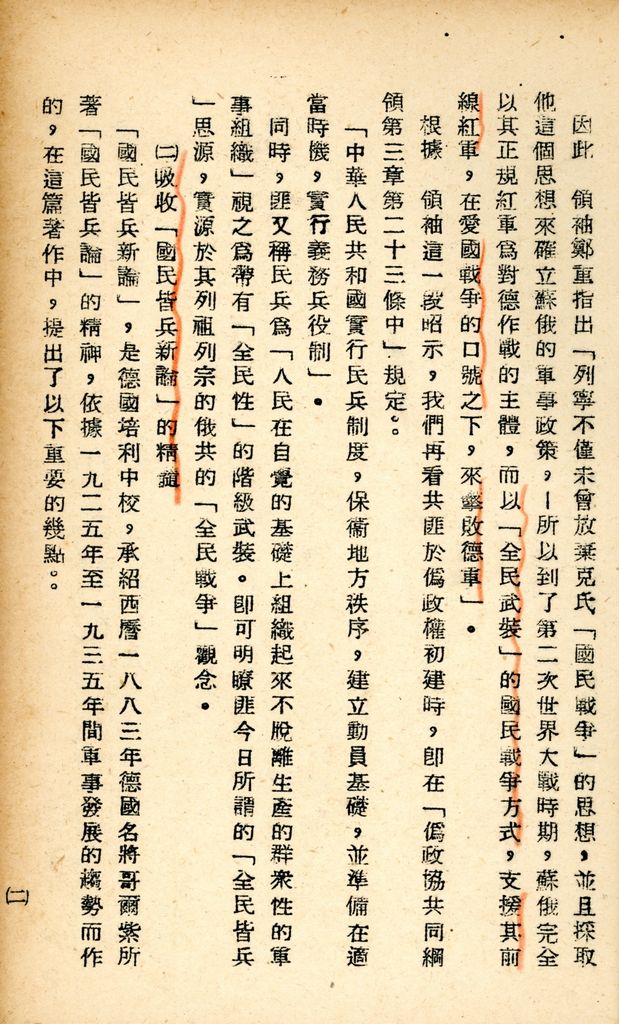 因此　領袖鄭重指出「列寧不僅未曾放棄克氏「國民戰爭」的思想，並且採取
他這個思想來確立蘇俄的軍事政策，—所以到了第二次世界大戰時期，蘇俄完全
以其正規紅軍爲對德作戰的主體，而以「全民武裝」的國民戰爭方式，支援其前
線紅軍，在愛國戰爭的口號之下，來擊敗德軍」。
根據　領袖這一段昭示，我們再看共匪於僞政權初建時，卽在「僞政協共同綱
領第三章第二十三條中」規定。。
「中華人民共和國實行民兵制度，保衞地方秩序，建立動員基礎，並準備在適
當時機，實行義務兵役制」。
同時，匪又稱民兵爲「人民在自覺的基礎上組織起來不脫離生產的群衆性的軍
事組織」視之爲帶有「全民性」的階級武裝。卽可明瞭匪今日所謂的「全民皆兵
」思源，實源於其列祖列宗的俄共的「全民戰爭」觀念。
㈡吸收「國民皆兵新論」的精誼
「國民皆兵新論」，是德國培利中校，承紹西曆一八八三年德國名將哥爾紫所
著「國民皆兵論」的精神，依據一九二五年至一九三五年間軍事發展的趨勢而作
的，在這篇著作中，提出了以下重要的幾點。。
㈡